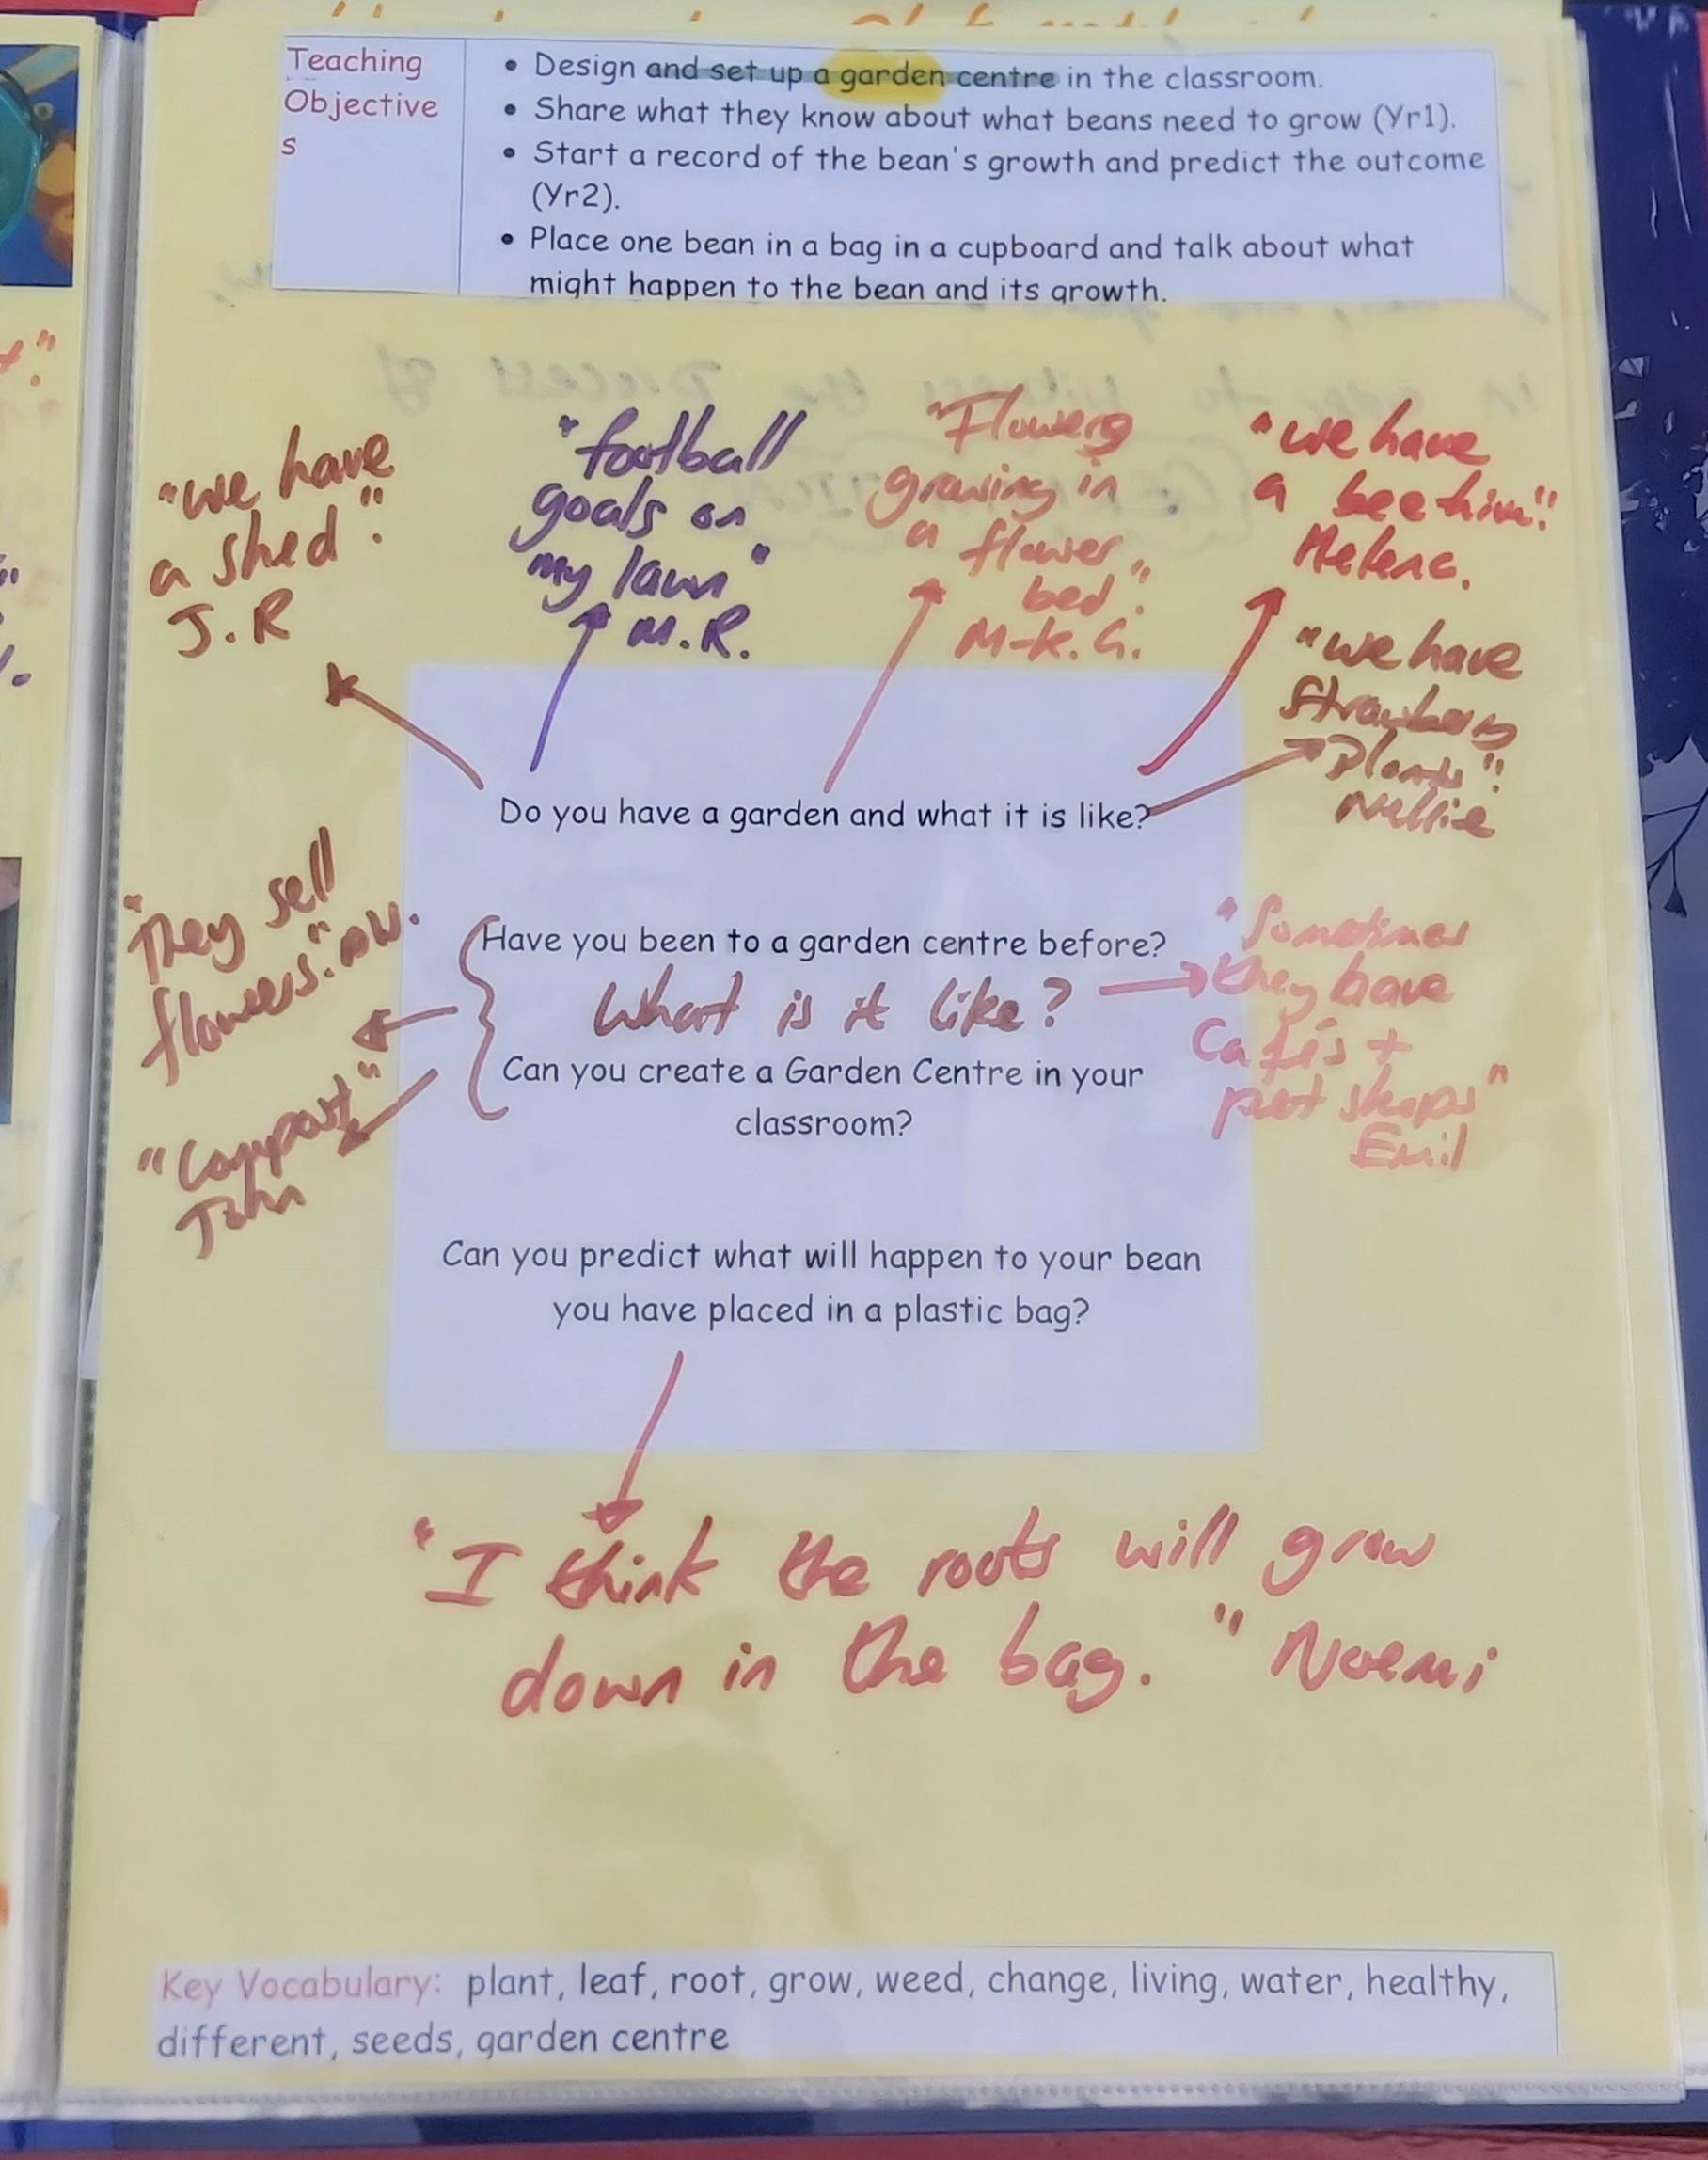 Teaching
Objective
s
• Design and set up a garden centre in the classroom.
• Share what they know about what beans need to grow (Yr1).
• Start a record of the bean's growth and predict the outcome
(Yr2).
• Place one bean in a bag in a cupboard and talk about what
might happen to the bean and its growth.
"we have
a shed".
J.R
"football
goals on
my lawn"
M.R.
"Flowers
growing in
a flower
bed".
M-K.G.
"we have
a bee hive".
Helena.
"we have
Strawberry
Plants".
Nellie
Do you have a garden and what it is like?
"They sell
flowers."
"Compost"
John
Have you been to a garden centre before?
What is it like?
Can you create a Garden Centre in your
classroom?
"Sometimes
they have
Cafés +
pet shops"
Emil
Can you predict what will happen to your bean
you have placed in a plastic bag?
"I think the roots will grow
down in the bag." Noemi
Key Vocabulary: plant, leaf, root, grow, weed, change, living, water, healthy,
different, seeds, garden centre